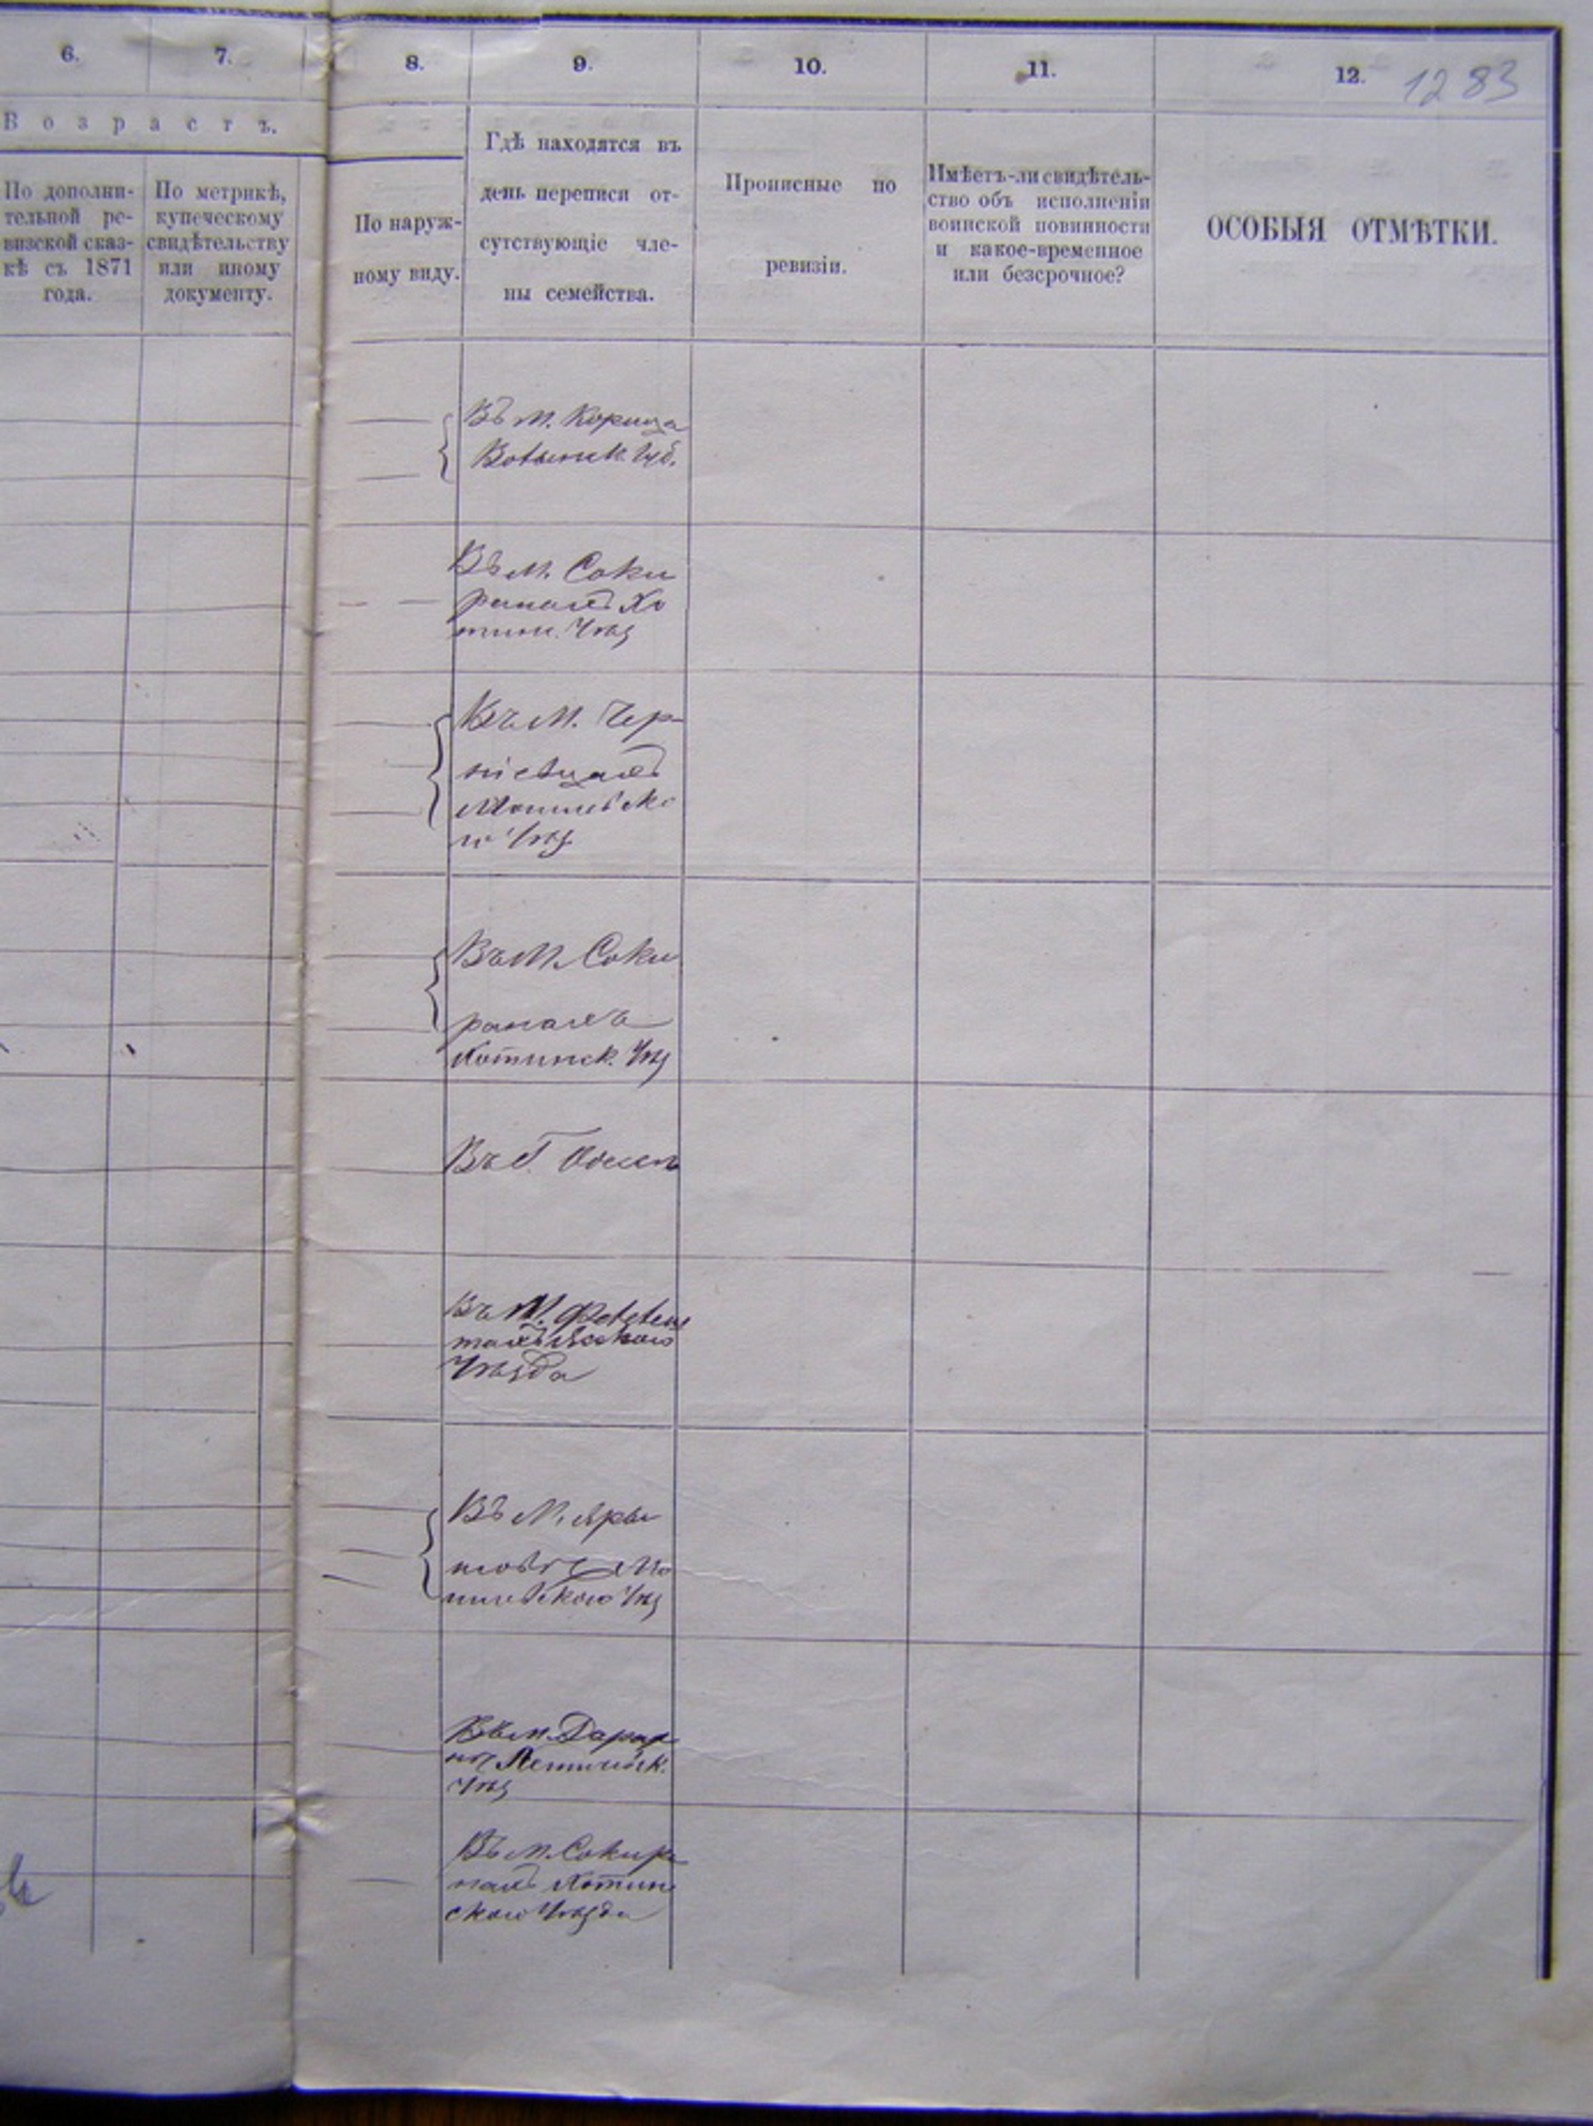 6. 7. 8. 9. 10. 11. 12. 1283
Возрастъ.
По дополни-
тельной ре-
визской сказ-
кѣ съ 1871
года.
По метрикѣ,
купеческому
свидѣтельству
или иному
документу.
По наруж-
ному виду.
Гдѣ находятся въ
день переписи от-
сутствующіе чле-
ны семейства.
Прописные по
ревизіи.
Имѣетъ-ли свидѣтель-
ство объ исполненіи
воинской повинности
и какое-временное
или безсрочное?
ОСОБЫЯ ОТМѢТКИ.
Въ м. Корица
Волынск. Губ.
Въ м. Соки
рянахъ Хо
тин. Уѣз
Въ М. Чер
нівцахъ
Могилевско
го Уѣз.
Въ М. Соки
рянахъ
Хотинск. Уѣз
Въ Г. Одессѣ
Въ М.
Уѣзда
Въ М. Яры
шовѣ Мо
гилевского Уѣз
Въ м. Дараж
нѣ Летичевск.
Уѣз
Въ м. Сокиря
нахъ Хотин
ского Уѣзда